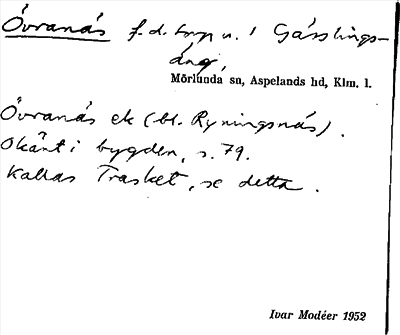 Övranäs f. d. torp u. 1 Gässlings-
äng,
Mörlunda sn, Aspelands hd, Klm. l.
Övranäs ek (bl. Ryningsnäs).
Okänt i bygden, s. 79.
Kallas Trasket, se detta.
Ivar Modéer 1952